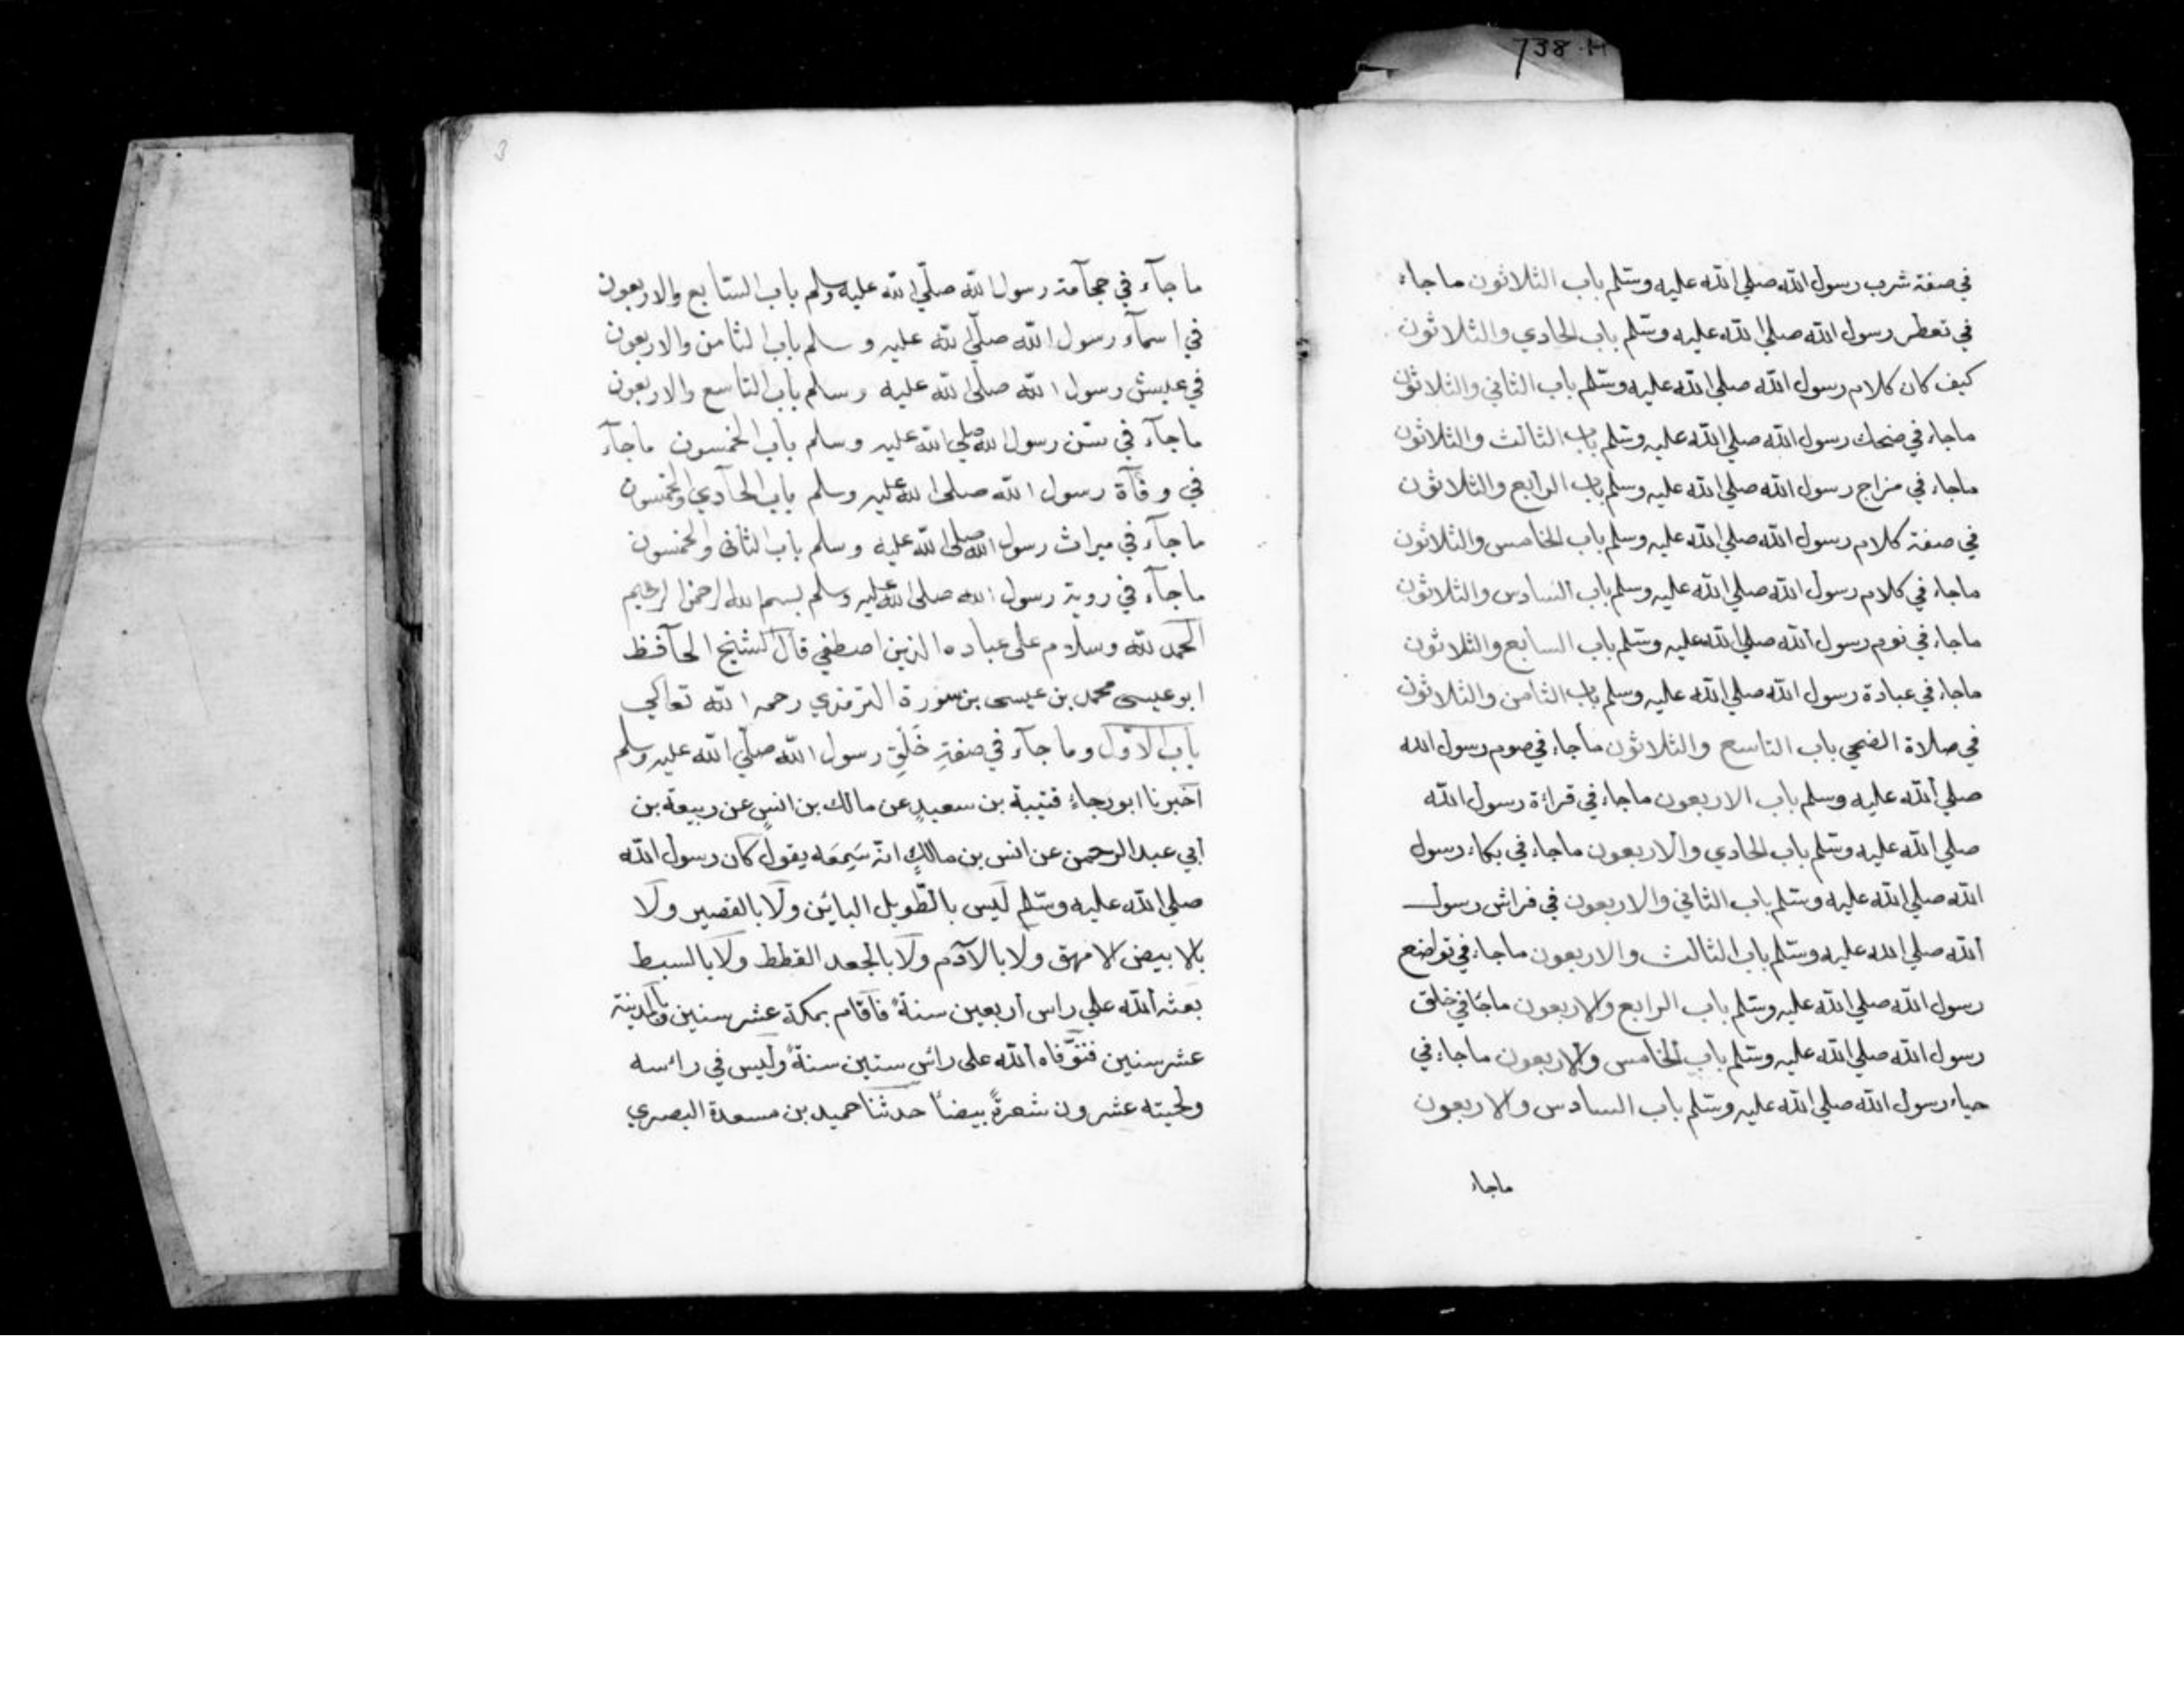 738.H
في صفة شرب رسول الله صلي الله عليه وسلم باب الثلاثون ماجاء
في تعطر رسول الله صلي الله عليه وسلم باب الحادي والثلاثون
كيف كان كلام رسول الله صلي الله عليه وسلم باب الثاني والثلاثون
ماجاء في ضحك رسول الله صلي الله عليه وسلم باب الثالث والثلاثون
ماجاء في مزاح رسول الله صلي الله عليه وسلم باب الرابع والثلاثون
في صفة كلام رسول الله صلي الله عليه وسلم باب الخامس والثلاثون
ماجاء في كلام رسول الله صلي الله عليه وسلم باب السادس والثلاثون
ماجاء في نوم رسول الله صلي الله عليه وسلم باب السابع والثلاثون
ماجاء في عبادة رسول الله صلي الله عليه وسلم باب الثامن والثلاثون
في صلاة الضحي باب التاسع والثلاثون ماجاء في صوم رسول الله
صلي الله عليه وسلم باب الاربعون ماجاء في قراءة رسول الله
صلي الله عليه وسلم باب الحادي والاربعون ماجاء في بكاء رسول
الله صلي الله عليه وسلم باب الثاني والاربعون في فراش رسول
الله صلي الله عليه وسلم باب الثالث والاربعون ماجاء في تواضع
رسول الله صلي الله عليه وسلم باب الرابع والاربعون ماجاء في خلق
رسول الله صلي الله عليه وسلم باب الخامس والاربعون ماجاء في
حياء رسول الله صلي الله عليه وسلم باب السادس والاربعون
ماجاء
3
ما جآء في حجآمة رسول الله صلّي الله عليه وسلم باب السّابع والاربعون
في اسمآء رسول الله صلّي الله عليه وسلم باب الثامن والاربعون
في عيش رسول الله صلّي الله عليه وسلم باب التاسع والاربعون
ماجآء في سن رسول الله صلي الله عليه وسلم باب الخمسون ماجآء
في وفآة رسول الله صلي الله عليه وسلم باب الحآدي والخمسون
ماجآء في ميراث رسول الله صلي الله عليه وسلم باب الثاني والخمسون
ماجآء في روية رسول الله صلي الله عليه وسلم بسم الله الرحمن الرحيم
الحمد لله وسلام على عباده الذين اصطفي قال الشيخ الحآفظ
ابو عيسى محمد بن عيسى بن سورة الترمذي رحمه الله تعالي
باب الاول وما جآء في صفة خَلْقِ رسول الله صلّي الله عليه وسلم
اخبرنا ابو رجاءٍ قتيبة بن سعيدٍ عن مالك بن انسٍ عن ربيعة بن
أبي عبد الرحمن عن انس بن مالكٍ انه سَمِعَه يقول كان رسول الله
صلي الله عليه وسلم ليس بالطّويل البائن ولا بالقصير ولا
بالابيض الامهق ولا بالآدم ولا بالجعد القطط ولا بالسبط
بعثه الله علي راس أربعين سنةً فاقام بمكة عشر سنين وبالمدينة
عشر سنين فتوّفاه الله على رائس ستين سنةً وليس في رائسه
ولحيته عشرون شعرةً بيضاً حدثنا حميد بن مسعدة البصري